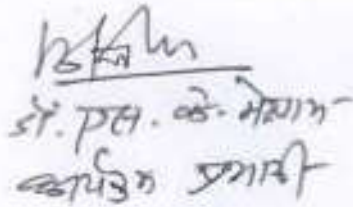 डॉ. एस. के. मेघाम
कार्यक्रम प्रभारी